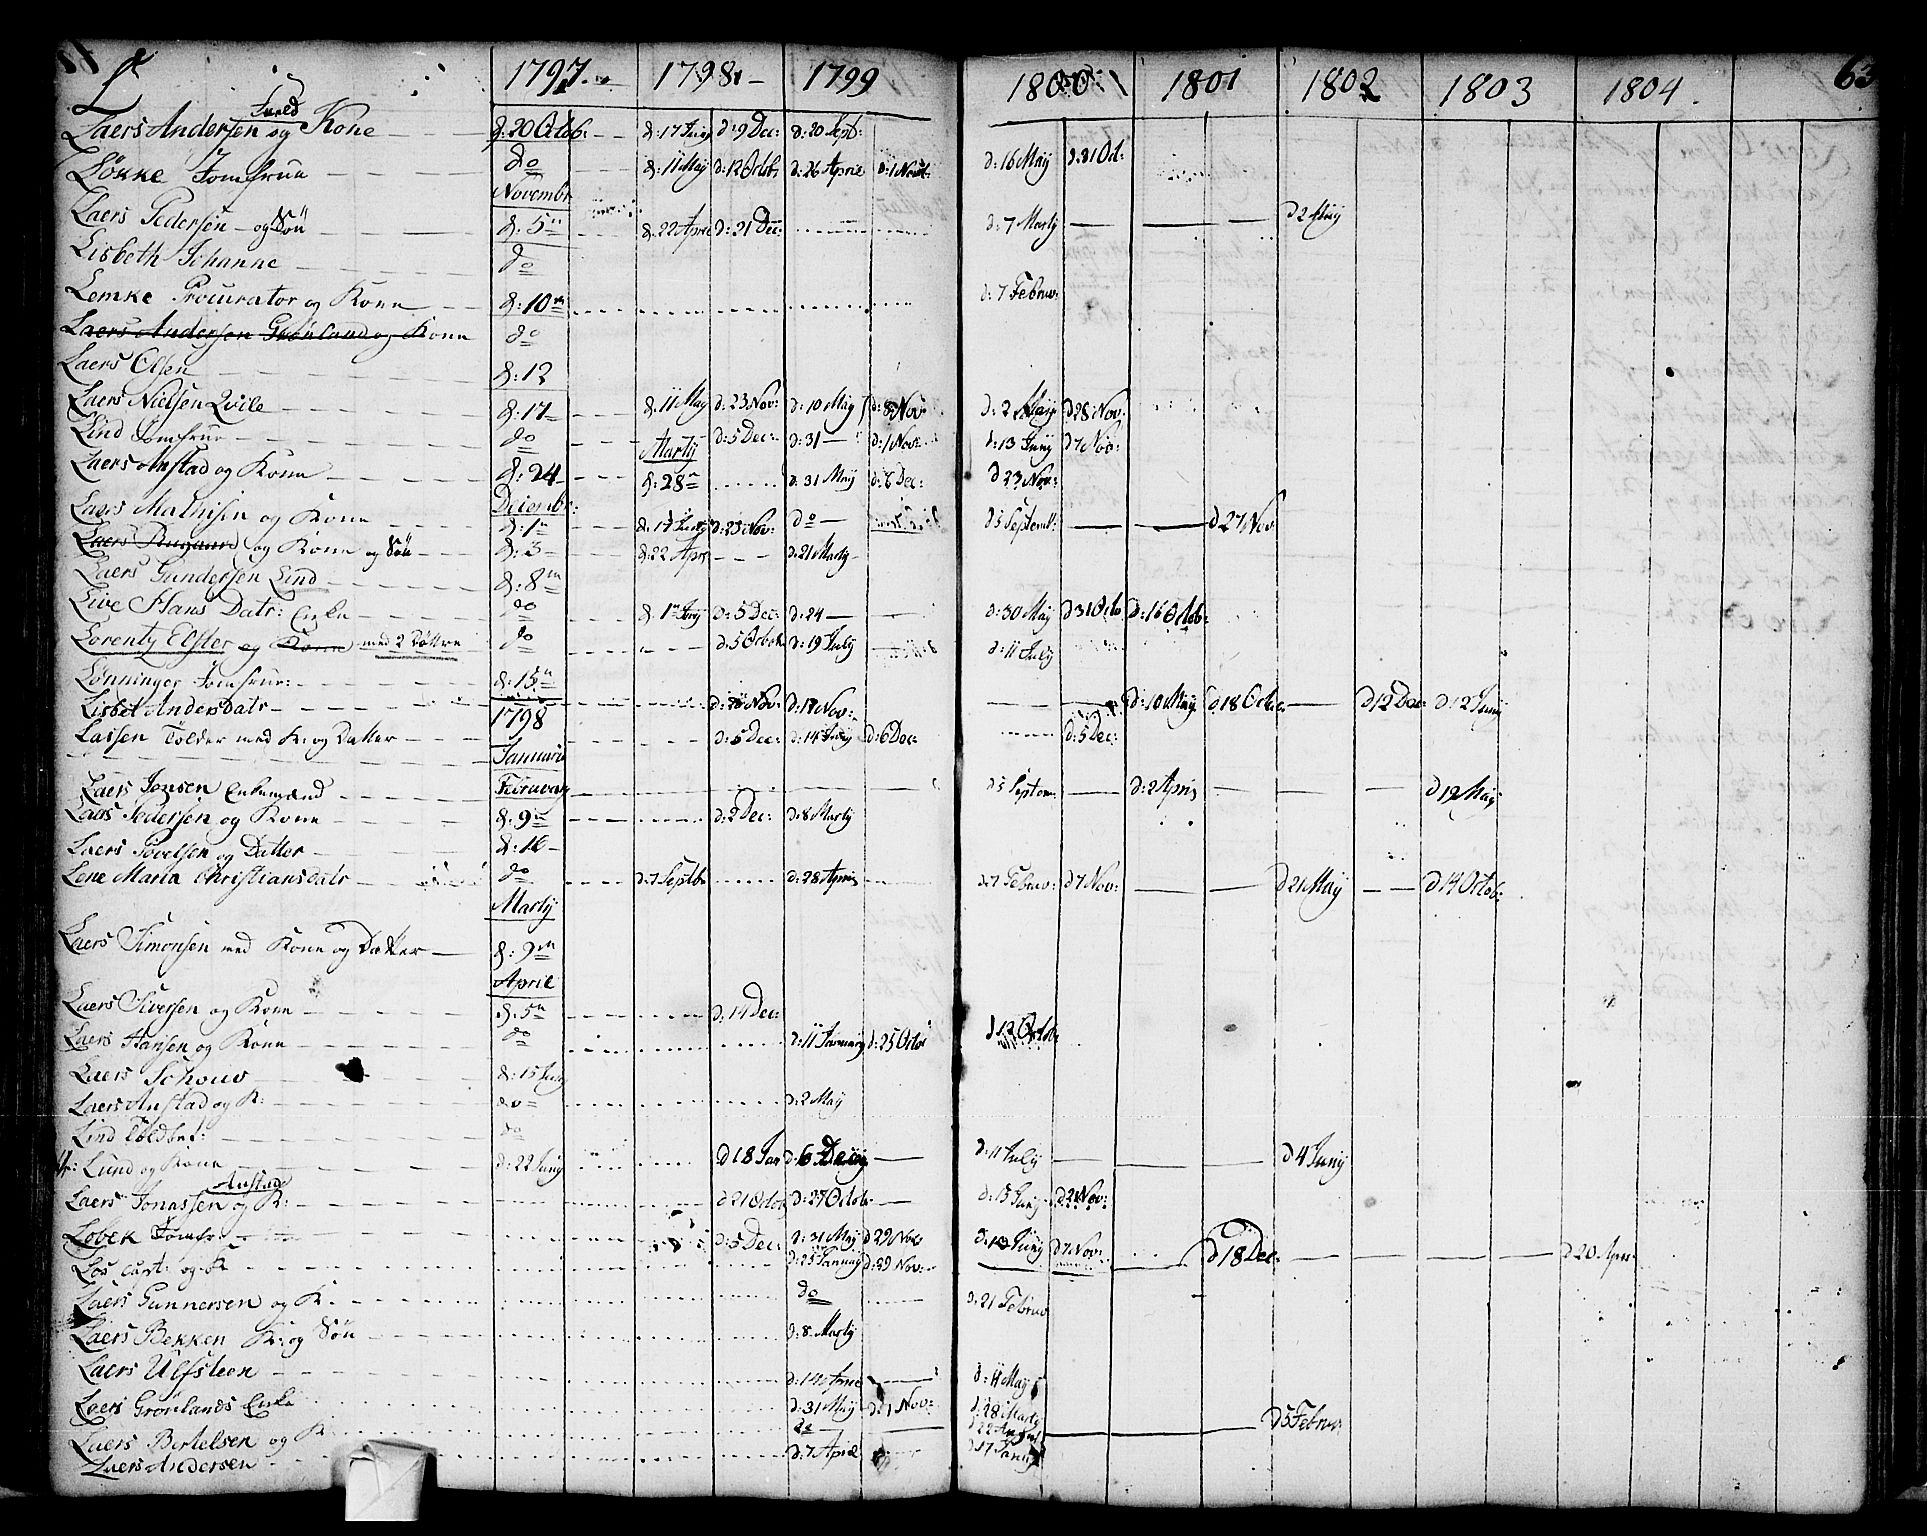 L 1797. 1798. 1799 1800 1801 1802 1803 1804. 63
Tveld
Laers Andersen og Kone d: 20 Octob: d: 17 Junij d: 9 Dec: d: 20 Sept:
Løkke Jomfrue do d: 11 Maij d: 12 Octob: d: 26 April d: 1 Nov: d: 16 Maij d: 31 Oct:
Novembr
Laers Pedersen og Søn d: 5 d: 22 April d: 21 Dec: d: 7 Martij d 2 Maij
Lisbeth Johanne do
Lemke Procurator og Kone d: 10 d: 7 Februv:
Laers Andersen Grønland og Kone do
Laers Olsen d: 12
Laers Nielsen Qvile d: 17 d: 11 Maij d: 23 Nov: d: 10 Maij d: 8 Nov d: 2 Maij d 28 Nov:
Lind Jomfrue do Martij d: 5 Dec: d: 31 d: 1 Nov: d: 13 Junij d 7 Nov:
Laers Anstad og Kone d: 24 d: 28 d: 31 Maij d: 6 Dec: d 23 Nov:
Decembr:
Laers Mathisen og Kone d: 1 d: 17 Junij d: 23 Nov: do d 5 Septemb: d 27 Nov
Laers Rugaard og Kone og Søn d: 3 d: 22 Apr d: 21 Martij
Laers Gundersen Lind d: 8
Live Hans Datr: Enke do d: 1 Junij d: 5 Dec: d: 24 d: 30 Maij d 31 Octo d: 16 Octob:
Lorentz Elster og Kone med 2 Døttre do d: 5 Octob d: 19 Julij d: 11 Julij
Lønninger Jomfrue: d: 15
Lisbet Andersdatr 1798 Nov: d: 18 Nov: d: 10 Maij d. 18 Octo d 12 Dec: d 12 Junij
Lassen Tolder med K: og Datter Januarii d: 5 Dec: d: 14 Julij d: 6 Dec: d: 5 Dec:
Laers Jonsen Enkemand Februarij d 5 Septem: d: 2 April d 12 Maij
Laers Pedersen og Kone d: 9 d: 2 Dec: d: 8 Martij
Laers Povelsen og Datter d: 16
Lene Maria Christiansdatr do d: 7 Septb d: 28 April d: 7 Februv: d 7 Nov: d 21 Maij d 14 Octob:
Martij
Laers Simonsen med Kone og Datter d: 9
April
Laers Siversen og Kone d: 5 d: 14 Dec:
Laers Hansen og Kone do d: 11 Januarij d: 25 Octo d 12 Octob:
Laers Schouv d: 15 Junij
Laers Anstad og K: do d: 2 Maij
Lind Toldbet: do
Lund og Kone d: 22 Junij d 18 Jan d: 6 d: 11 Julij d 4 Junij
Anstad
Laers Jonassen og K: d 21 Octob d: 27 Octob: d: 13 Junij d 21 Nov:
Lobek Jomfr: d: 5 Dec: d: 31 Maij d 29 Nov d: 13 Junij d 7 Nov: d 18 Dec: d 20 Apr
Los Cast: og K d: 25 Januarij d: 29 Nov:
Laers Gunnersen og K. do d: 21 Februv
Laers Bekken K: og Søn d: 8 Martij
Laers Ulfsteen d: 14 April d: 4 Maij
Laers Grønlands Enke d: 31 Maij d: 1 Nov: d: 28 Martij d 5 Februv
Laers Bertelsen og K. do d 22 August
Laers Andersen d: 7 April d 17 Januarij